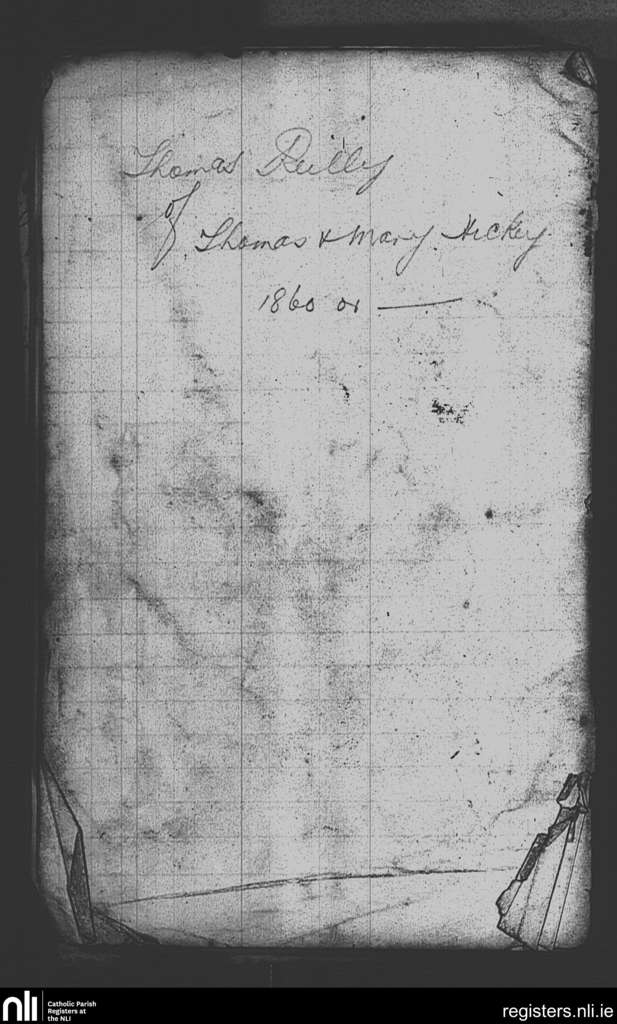 Thomas Reilly
of
Thomas & Mary Hickey
1860 or —
nli
Catholic Parish
Registers at
the NLI
registers.nli.ie